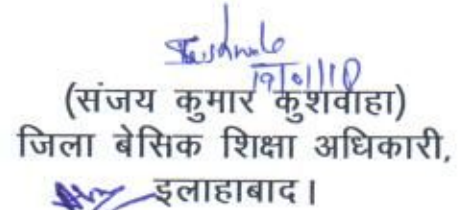 19/01/18
(संजय कुमार कुशवाहा)
जिला बेसिक शिक्षा अधिकारी,
इलाहाबाद।